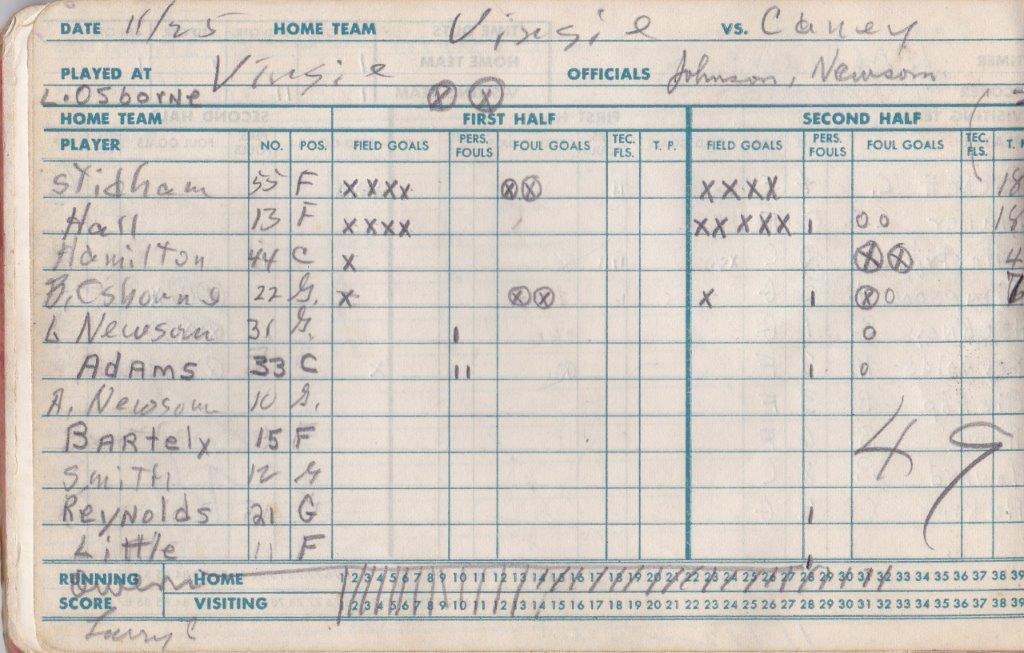 DATE 11/25 HOME TEAM Virgie VS. Caney
PLAYED AT Virgie OFFICIALS Johnson, Newsom
L. OSborne ⓧ ⓧ
HOME TEAM FIRST HALF SECOND HALF
PLAYER NO. POS. FIELD GOALS PERS. FOULS FOUL GOALS TEC. FLS. T. P. FIELD GOALS PERS. FOULS FOUL GOALS TEC. FLS. T. P
Stidham 55 F xxxx ⓧⓧ xxxx 18
Hall 13 F xxxx xxxxx 1 00 18
Hamilton 44 C x ⓧⓧ 4
B. Osborne 22 G. x ⓧⓧ x 1 ⓧ0 7
L Newsom 31 G. 1 0
Adams 33 C 11 1 0
A. Newsom 10 G.
BARtely 15 F 49
Smith 12 G
ReyNolds 21 G 1
Little 11 F
RUNNING HOME 1 2 3 4 5 6 7 8 9 10 11 12 13 14 15 16 17 18 19 20 21 22 23 24 25 26 27 28 29 30 31 32 33 34 35 36 37 38 39
SCORE VISITING 1 2 3 4 5 6 7 8 9 10 11 12 13 14 15 16 17 18 19 20 21 22 23 24 25 26 27 28 29 30 31 32 33 34 35 36 37 38 39
Larry C